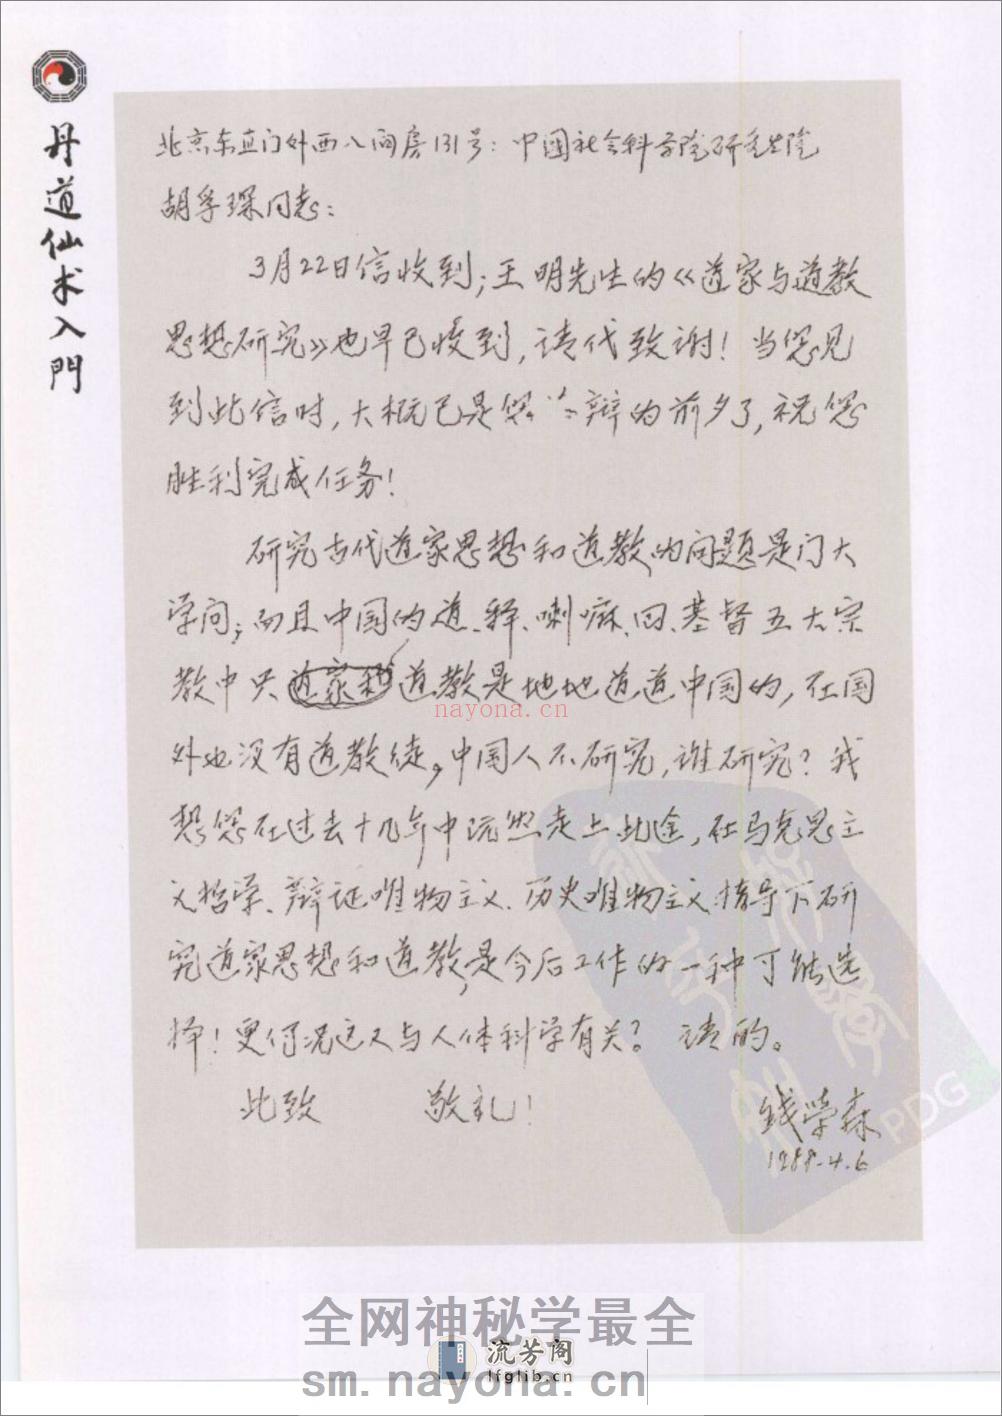 丹道仙术入門
北京东直门外西八间房131号：中国社会科学院研究生院
胡孚琛同志：
3月22日信收到；王明先生的《道家与道教
思想研究》也早已收到，请代致谢！当您见
到此信时，大概已是您 辩的前夕了，祝您
胜利完成任务！
研究古代道家思想和道教的问题是门大
学问；而且中国的道、释、喇嘛、回、基督五大宗
教中只道教是地地道道中国的，在国
外也没有道教徒。中国人不研究，谁研究？我
想您在过去十几年中既然走上此途，在马克思主
义哲学、辩证唯物主义、历史唯物主义指导下研
究道家思想和道教，是今后工作的一种可能选
择！更何况这又与人体科学有关？ 请酌。
此致 敬礼！
钱学森
4.6
nayona.cn
PDG
全网神秘学最全
流芳阁
lfglib.cn
sm.nayona.cn